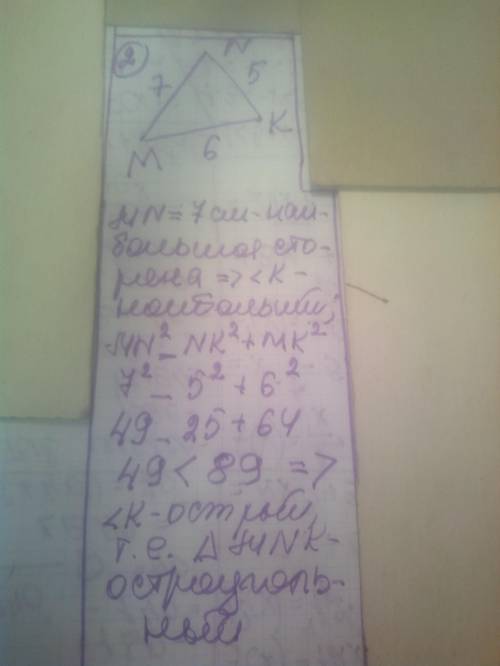 2
N
7
5
K
M
6
MN = 7 см - наи-
большая сто-
рона => <K -
наибольший;
MN² _ NK² + MK²
7² _ 5² + 6²
49 _ 25 + 64
49 < 89 =>
<K - острый,
т.е. Δ MNK -
остроуголь-
ный